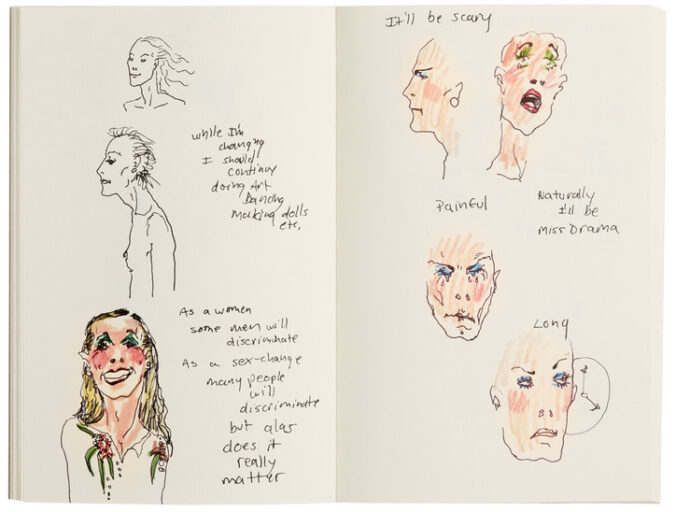 while I'm
changing
I should
continuy
doing Art
Dancing
making dolls
etc.
As a women
some men will
discriminate
As a sex-change
many people
will
discriminate
but alas
does it
really
matter
It'll be scary
Painful
Naturally
I'll be
miss Drama
Long